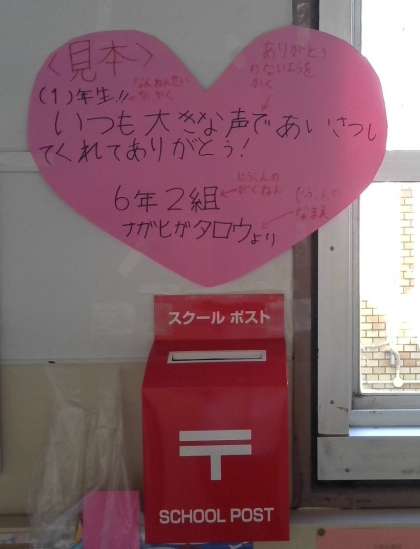 〈見本〉
ありがとう
ないようを
かく
(1)年生〃
いつも大きな声であいさつし
てくれてありがとう!
6年2組
じぶんの
がくねん
ナガヒガタロウより
じぶんの
なまえ
スクール ポスト
〒
SCHOOL POST